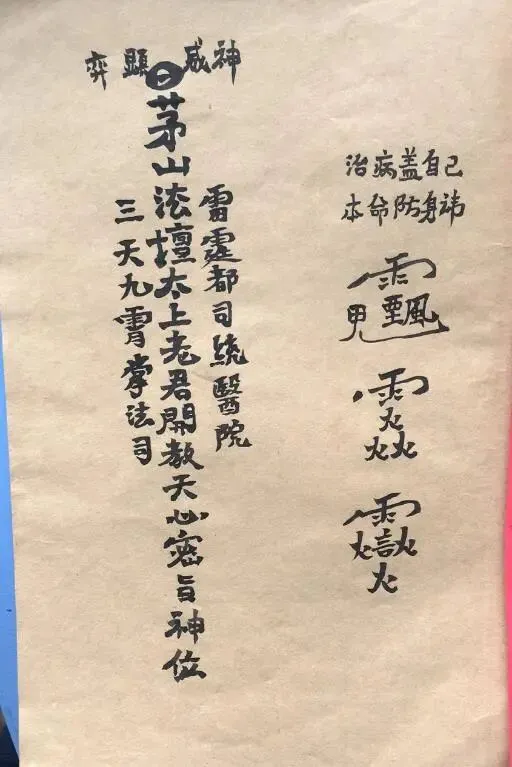 治病盖自己
本命防身祎
神威顯奕
雷霆都司統醫院
茅山法壇太上老君開教天心密旨神位
三天九霄掌法司